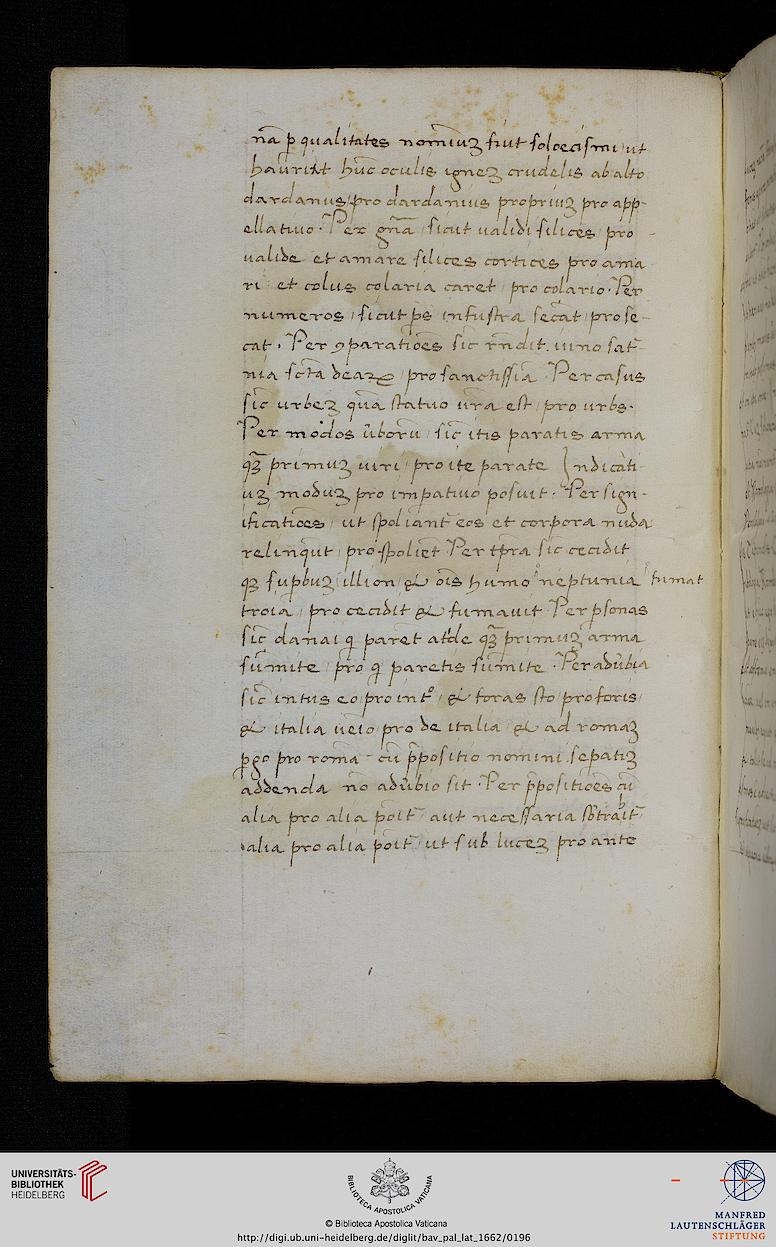 nā p qualitates nominuꝫ fiut soloecismi ut
haurint hūc oculis igneꝫ crudelis ab alto
dardanus pro dardanius propriuꝫ pro app-
ellatiuo · Per gn̄a sicut ualidi silices pro
ualide et amare silices cortices pro ama
ri et colus colaria caret pro colario · Per
numeros sicut ps in fustra secāt pro se-
cat · Per ꝯparatiōes sic rn̄dit iuno sat-
nia sc̄ta dearꝝ pro sanctissīa Per casus
sic urbeꝫ quā statuo ur̄a est pro urbs·
Per modos ūboru sic itis paratis arma
qꝫ primuꝫ uiri pro ite parate Indicati
uꝫ moduꝫ pro impatiuo posuit · Per sign-
ificatiōes ut spoliant eos et corpora nuda
relinqūt pro spoliēt Per tp̄ra sic cecidit
qꝫ supbuꝫ illion & oīs humo neptunia fumat
troia pro cecidit & fumauit Per psonas
sic danai q paret atde qꝫ primuꝫ arma
sumite pro q paretis sumite · Per adūbia
sic intus eo pro intᵒ & foras sto pro foris
& italia ueīo pro de italia & ad romaꝫ
pgo pro roma cū p̄positio nomini sepatiꝫ
addenda nō adūbio sit · Per p̄positiōes cū
alia pro alia pōit aut necessaria sbtrait
alia pro alia pōit ut sub luceꝫ pro ante
UNIVERSITÄTS-
BIBLIOTHEK
HEIDELBERG
BIBLIOTECA APOSTOLICA VATICANA
© Biblioteca Apostolica Vaticana
http://digi.ub.uni-heidelberg.de/diglit/bav_pal_lat_1662/0196
MANFRED
LAUTENSCHLÄGER
STIFTUNG